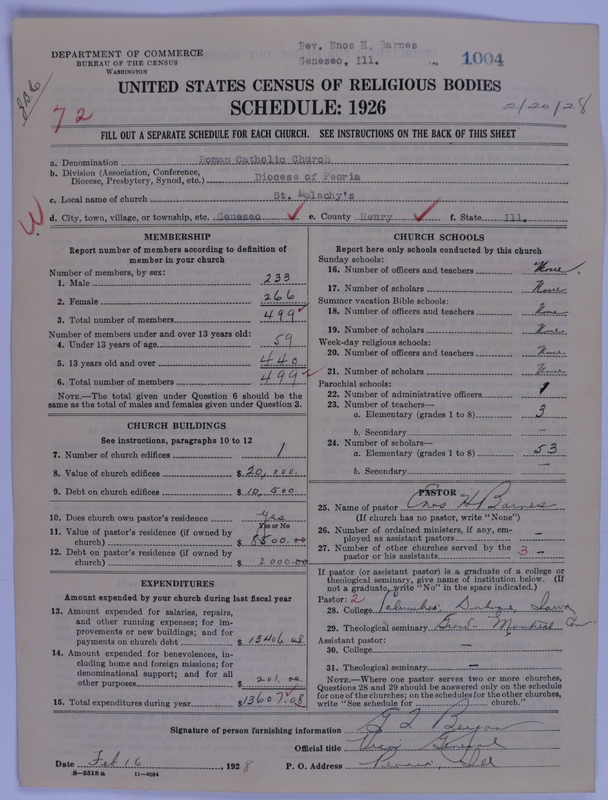 DEPARTMENT OF COMMERCE
BUREAU OF THE CENSUS
WASHINGTON
Rev. Enos H. Barnes
Geneseo, Ill.
1004
UNITED STATES CENSUS OF RELIGIOUS BODIES
SCHEDULE: 1926
72
2/20/28
FILL OUT A SEPARATE SCHEDULE FOR EACH CHURCH. SEE INSTRUCTIONS ON THE BACK OF THIS SHEET
a. Denomination Roman Catholic Church
b. Division (Association, Conference,
Diocese, Presbytery, Synod, etc.) Diocese of Peoria
c. Local name of church St. Malachy's
d. City, town, village, or township, etc. Geneseo e. County Henry f. State Ill.
MEMBERSHIP
Report number of members according to definition of
member in your church
Number of members, by sex:
1. Male 233
2. Female 266
3. Total number of members 499
Number of members under and over 13 years old:
4. Under 13 years of age 59
5. 13 years old and over 440
6. Total number of members 499
NOTE.—The total given under Question 6 should be
same as the total of males and females given under Question 3.
CHURCH BUILDINGS
See instructions, paragraphs 10 to 12
7. Number of church edifices 1
8. Value of church edifices $ 20,000.
9. Debt on church edifices $ 10,500
10. Does church own pastor's residence yes
Yes or No
11. Value of pastor's residence (if owned by
church) $ 8500.00
12. Debt on pastor's residence (if owned by
church) $ 2000.00
EXPENDITURES
Amount expended by your church during last fiscal year
13. Amount expended for salaries, repairs,
and other running expenses; for im-
provements or new buildings; and for
payments on church debt $ 13406.08
14. Amount expended for benevolences, in-
cluding home and foreign missions; for
denominational support; and for all
other purposes $ 201.00
15. Total expenditures during year $ 13607.08
CHURCH SCHOOLS
Report here only schools conducted by this church
Sunday schools:
16. Number of officers and teachers None
17. Number of scholars None
Summer vacation Bible schools:
18. Number of officers and teachers None
19. Number of scholars None
Week-day religious schools:
20. Number of officers and teachers None
21. Number of scholars None
Parochial schools:
22. Number of administrative officers 1
23. Number of teachers—
a. Elementary (grades 1 to 8) 3
b. Secondary —
24. Number of scholars—
a. Elementary (grades 1 to 8) 53
b. Secondary —
PASTOR
25. Name of pastor Enos H Barnes
(If church has no pastor, write "None")
26. Number of ordained ministers, if any, em-
ployed as assistant pastors —
27. Number of other churches served by the
pastor or his assistants 3 —
If pastor (or assistant pastor) is a graduate of a college or
theological seminary, give name of institution below. (If
not a graduate, write "No" in the space indicated.)
Pastor: 2
28. College Columbia, Dubuque, Iowa
29. Theological seminary Grand Montreal Can
Assistant pastor:
30. College —
31. Theological seminary —
NOTE.—Where one pastor serves two or more churches,
Questions 28 and 29 should be answered only on the schedule
for one of the churches; on the schedules for the other churches,
write "See schedule for church."
Signature of person furnishing information
Official title Vicar General
Date Feb 16, 1928 P. O. Address Peoria, Ill
8—5518 a 11—9054